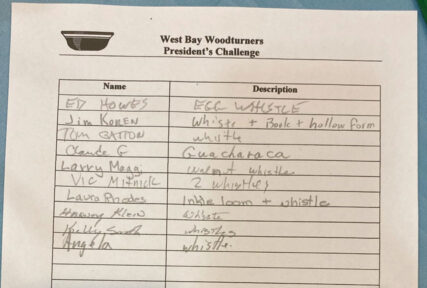 West Bay Woodturners
President's Challenge
Name Description
ED HOWES EGG WHISTLE
Jim KOREN whistle + Book + hollow form
TOM GATTON whistle
Claude G Guacharaca
Larry walnut whistle
VIC MITNICK 2 whistles
Laura Rhodes Inkle loom + whistle
Klein whistle
Kelly Smith whistles
Angelo whistle.